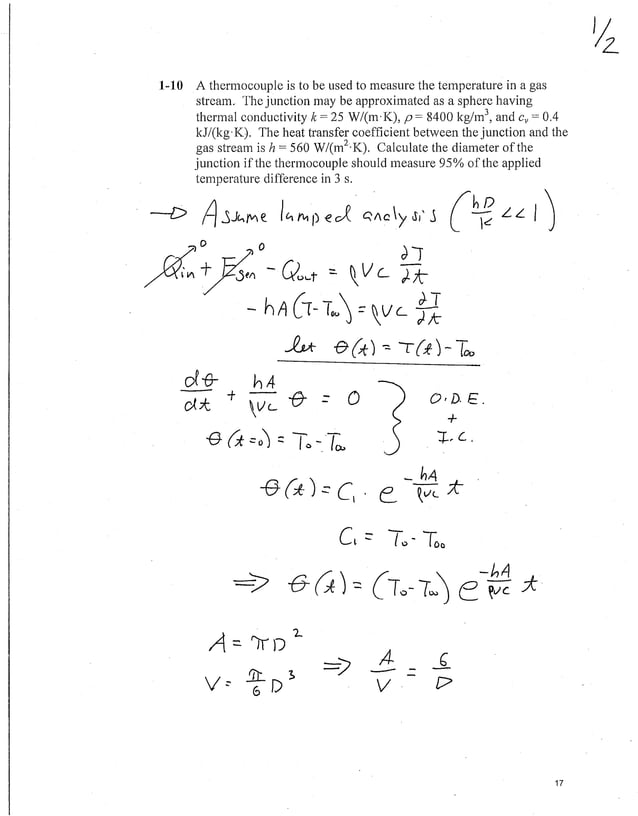 1/2
1-10 A thermocouple is to be used to measure the temperature in a gas
stream. The junction may be approximated as a sphere having
thermal conductivity k = 25 W/(m·K), ρ = 8400 kg/m³, and cᵥ = 0.4
kJ/(kg·K). The heat transfer coefficient between the junction and the
gas stream is h = 560 W/(m²·K). Calculate the diameter of the
junction if the thermocouple should measure 95% of the applied
temperature difference in 3 s.
→ Assume lumped analysis (hD/k << 1)
Q̇in→0 + Ėgen→0 - Qout = ρVc ∂T/∂t
-hA(T-T∞) = ρVc ∂T/∂t
let θ(t) = T(t) - T∞
dθ/dt + hA/ρVc θ = 0 } O.D.E.
+
θ(t=0) = T₀ - T∞ I.C.
θ(t) = C₁ · e^(-hA/ρVc t)
C₁ = T₀ - T∞
⇒ θ(t) = (T₀ - T∞) e^(-hA/ρVc t)
A = πD²
V = π/6 D³ ⇒ A/V = 6/D
17